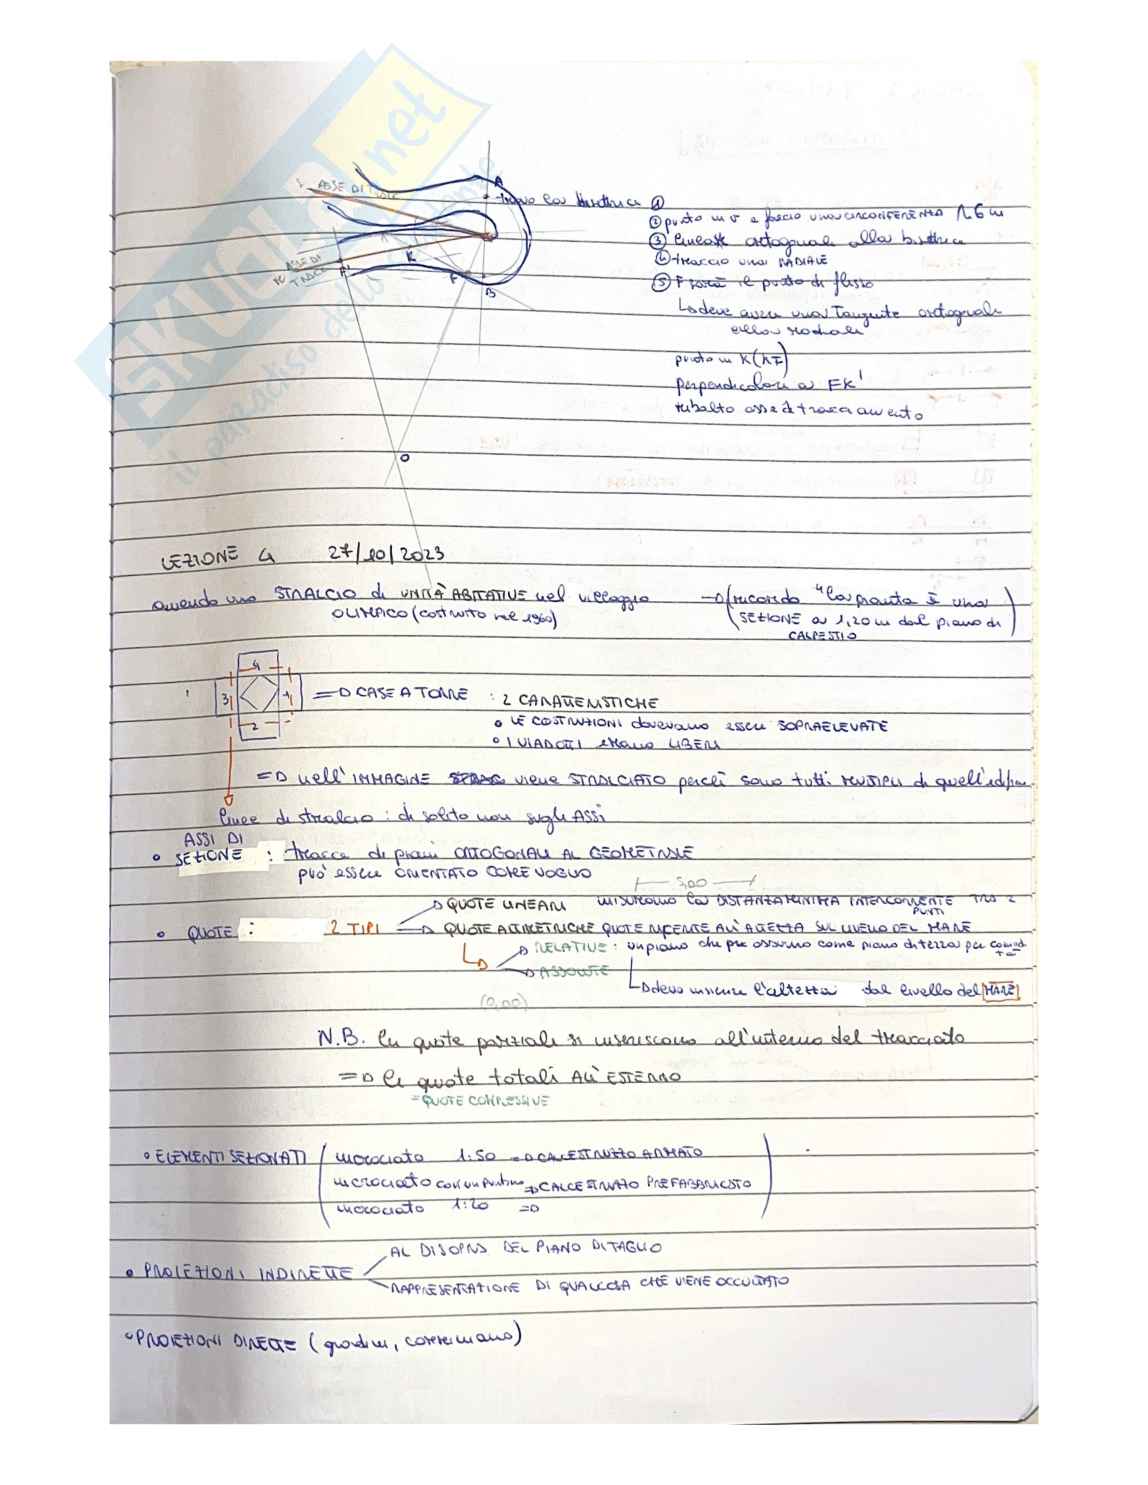 SKUOLA.net
il paradiso dello studente
ASSE DI
A
trovo la bisettrice ①
② punto in V e faccio una circonferenza r 6 cm
③ lineate ortogonali alla bisettrice
④ traccio una RADIALE
⑤ F sarà il punto di flesso
ASSE DI
K
A'
F
B
↳ deve avere una tangente ortogonale
alla radiale
punto in K (KF)
perpendicolare a FK'
ribalto asse di tracciamento
O
LEZIONE 4 27/10/2023
avendo uno STRALCIO di UNITÀ ABITATIVE nel villaggio
OLIMPICO (costruito nel 1960)
→ (ricordo "la pianta è una
SEZIONE a 1,20 m dal piano di
CALPESTIO)
4
3 1
2
⇒ CASE A TORRE : 2 CARATTERISTICHE
• LE COSTRUZIONI dovevano essere SOPRAELEVATE
• I VIADOTTI erano LIBERI
⇒ nell'IMMAGINE viene STRALCIATO perchè sono tutti MULTIPLI di quell'
linee di stralcio : di solito non sugli ASSI
• ASSI DI
SEZIONE : tracce di piani ORTOGONALI AL GEOMETRALE
può essere ORIENTATO COME VOGLIO
3,00
→ QUOTE LINEARI misurano la DISTANZA MINIMA INTERCORRENTE TRA 2
PUNTI
• QUOTE : 2 TIPI → QUOTE ALTIMETRICHE QUOTE RIFERITE ALL'ALTEZZA SUL LIVELLO DEL MARE
→ RELATIVE : un piano che poi assumo come piano di terra per comodità
→ ASSOLUTE
↳ devo inserire l'altezza dal livello del MARE
(0,00)
N.B. le quote parziali si inseriscono all'interno del tracciato
⇒ le quote totali ALL'ESTERNO
= QUOTE COMPLESSIVE
• ELEMENTI SEZIONATI ( incrociato 1:50 ⇒ CALCESTRUZZO ARMATO
incrociato con un puntino ⇒ CALCESTRUZZO PREFABBRICATO
incrociato 1:20 ⇒ )
• PROIEZIONI INDIRETTE
AL DISOPRA DEL PIANO DI TAGLIO
RAPPRESENTAZIONE DI QUALCOSA CHE VIENE OCCULTATO
• PROIEZIONI DIRETTE (gradini, corrimano)